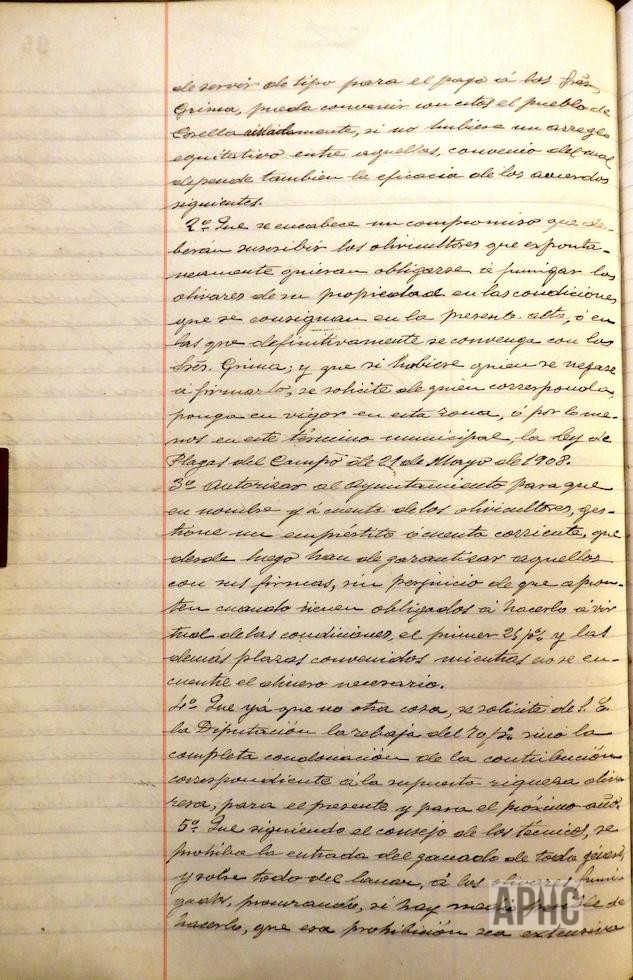 de servir de tipo para el pago á los Srés.
Grima, pueda convenir con estos el pueblo de
Corella aisladamente, si no hubiese un arreglo
equitativo entre aquellos, convenio del cual
depende tambien la eficacia de los acuerdos
siguientes.
2º Que se encabece un compromiso que de-
berán suscribir los olivicultores que esponta-
neamente quieran obligarse á fumigar los
olivares de su propiedad en las condiciones
que se consignan en la presente acta, ó en
las que definitivamente se convenga con los
Srés. Grima; y que si hubiese quien se negase
á firmarlo, se solicite de quien corresponda,
ponga en vigor en esta zona, ó por lo me-
nos en este término municipal, la ley de
Plagas del Campo de 21 de Mayo de 1908.
3º Autorizar al Ayuntamiento para que
en nombre y á cuenta de los olivicultores, ges-
tione un empréstito ó cuenta corriente, que
desde luego han de garantizar aquellos
con sus firmas, sin perjuicio de que apron-
ten cuando vienen obligados á hacerlo á vir
tual de las condiciones, el primer 25 p% y los
demás plazos convenidos mientras no se en-
cuentre el dinero necesario.
4º Que yá que no otra cosa, se solicite de S. E.
la Diputación la rebaja del 70 p% sinó la
completa condonación de la contribución
correspondiente á la supuesta riqueza oliva
rera, para el presente y para el próximo año.
5º Que siguiendo el consejo de los técnicos, se
prohiba la entrada del ganado de todo género,
y sobre todo del lanar, á los olivares fumi-
gados, procurando, si hay medio posible de
hacerlo, que esa prohibición sea extensiva
APHC